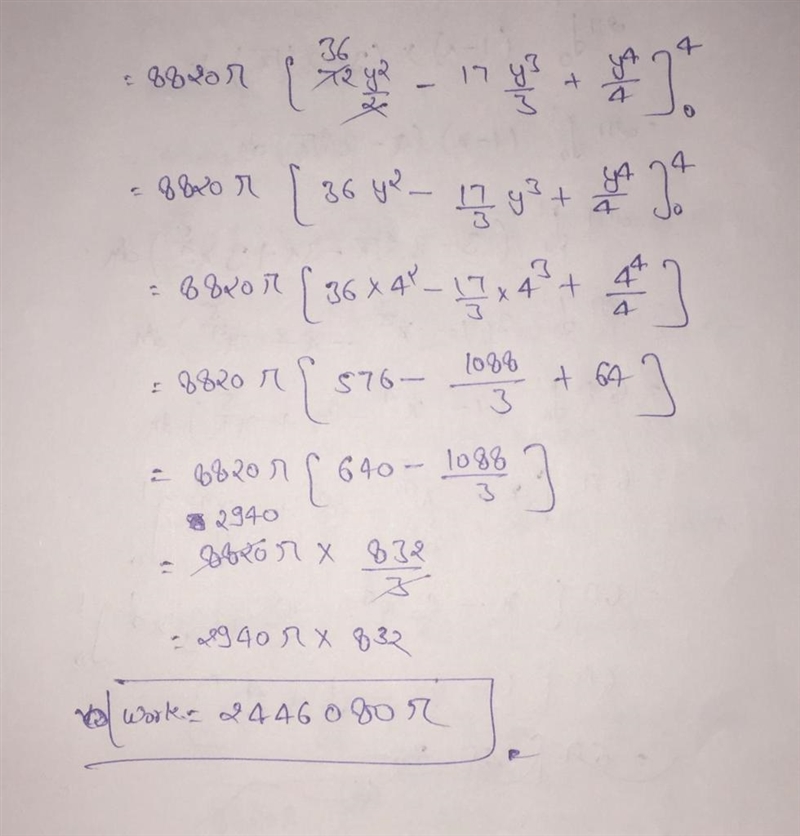 = 8820π [ 36 72 y²/2 - 17 y³/3 + y⁴/4 ]₀⁴
= 8820π [ 36 y² - 17/3 y³ + y⁴/4 ]₀⁴
= 8820π [ 36 × 4² - 17/3 × 4³ + 4⁴/4 ]
= 8820π [ 576 - 1088/3 + 64 ]
= 8820π [ 640 - 1088/3 ]
2940
= 8820π × 832/3
= 2940π × 832
Work = 2446080π.